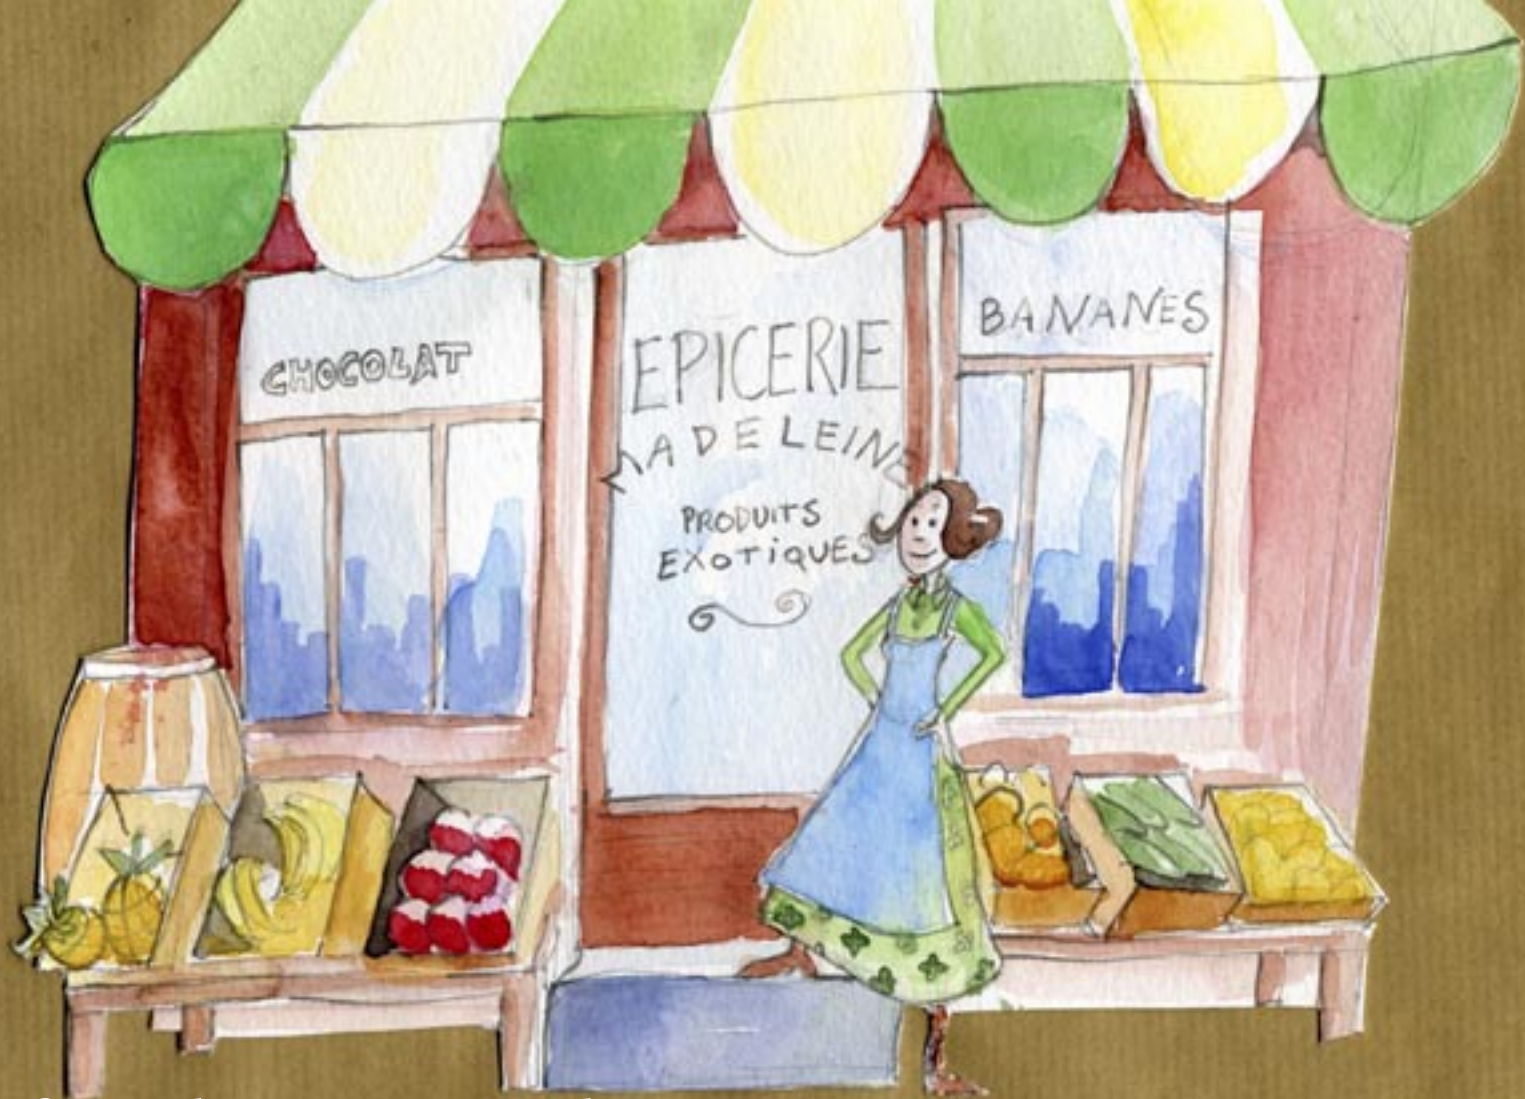 CHOCOLAT
EPICERIE
MADELEINE
PRODUITS
EXOTIQUES
BANANES